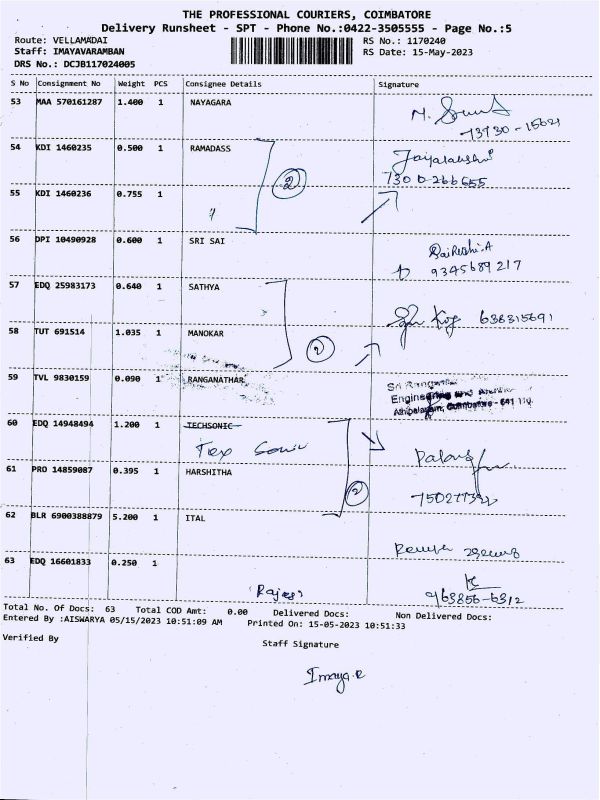 THE PROFESSIONAL COURIERS, COIMBATORE
Delivery Runsheet - SPT - Phone No.:0422-3505555 - Page No.:5
Route: VELLAMADAI RS No.: 1170240
Staff: IMAYAVARAMBAN RS Date: 15-May-2023
DRS No.: DCJB117024005
S No Consignment No Weight PCS Consignee Details Signature
53 MAA 570161287 1.400 1 NAYAGARA
73730-15621
54 KDI 1460235 0.500 1 RAMADASS
2
55 KDI 1460236 0.755 1 〃
56 DPI 10490928 0.600 1 SRI SAI
9345689217
57 EDQ 25983173 0.640 1 SATHYA
636315691
58 TUT 691514 1.035 1 MANOKAR
2
59 TVL 9830159 0.090 1 RANGANATHAR
Engineering
Athipalayam, Coimbatore - 641 110
60 EDQ 14948494 1.200 1 TECHSONIC
Tex Sonic
61 PRO 14859087 0.395 1 HARSHITHA
2
62 BLR 6900388879 5.200 1 ITAL
63 EDQ 16601833 0.250 1
963856-6312
Total No. Of Docs: 63 Total COD Amt: 0.00 Delivered Docs: Non Delivered Docs:
Entered By :AISWARYA 05/15/2023 10:51:09 AM Printed On: 15-05-2023 10:51:33
Verified By
Staff Signature
Imaya.R